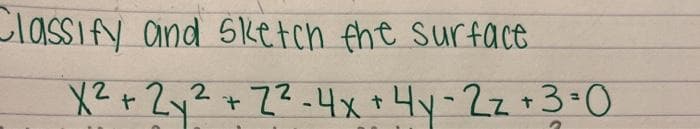 Classify and sketch the surface
x² + 2y² + z² - 4x + 4y - 2z + 3 = 0